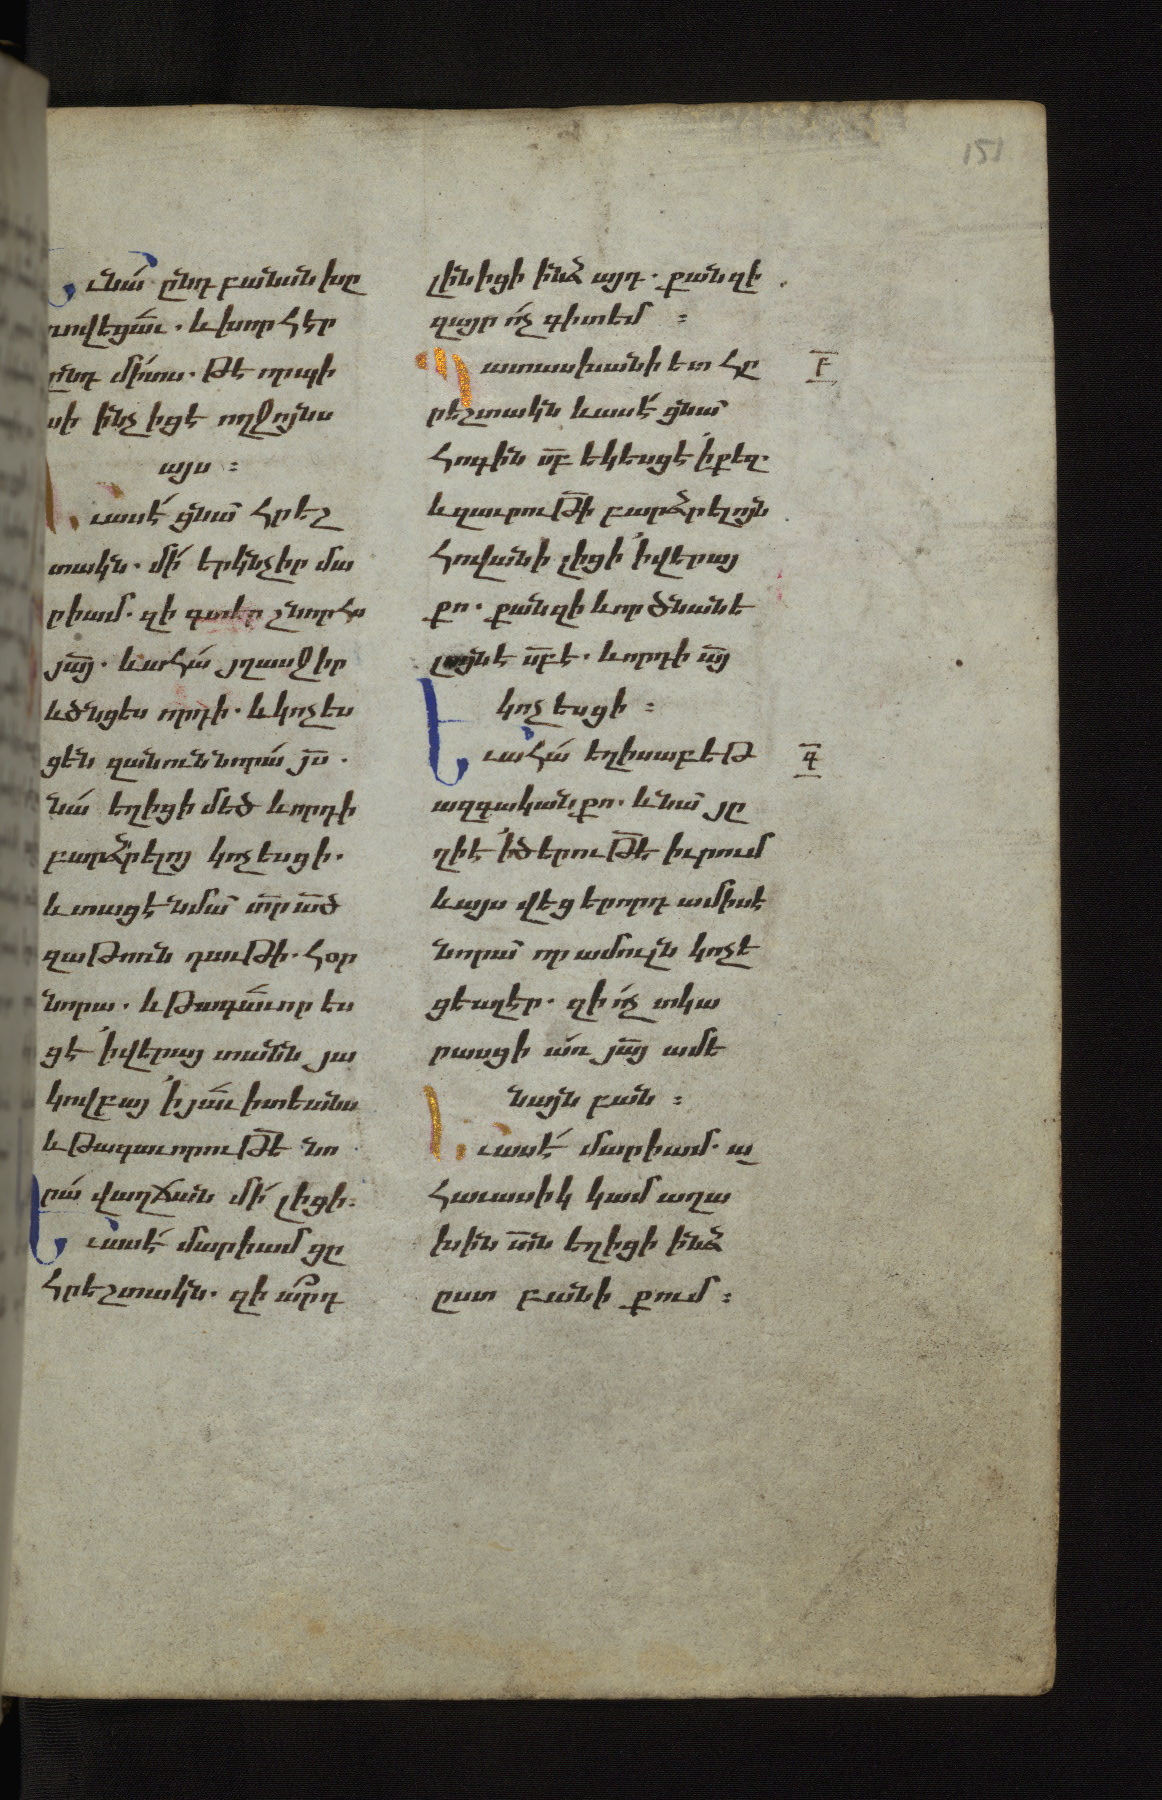 151
Եւ նա՛ ընդ բանան խը
ռովեցա՛ւ. և խորհէր
ընդ մի՛տս. թէ որպի
սի ի՛նչ իցէ ողջոյնս
այս :
Եւ ասէ՛ ցնա՛ հրեշ
տակն. մի՛ երկնչիր մա
րիամ. զի գտեր շնորհս
յա՟յ. և ահա՛ յղասջիր
և ծնցես որդի. և կոչես
ցեն զանուն նորա՛ յ՟ս.
նա՛ եղիցի մեծ և որդի
բարձրելոյ կոչեսցի.
և տացէ նմա՛ տ՟ր ա՟ծ
զաթոռն դաւթի. հօր
նորա. և թագա՛ւորես
ցէ ի վերայ տանն յա
կովբայ ի յա՛ւիտեանս
և թագաւորութ՟ե նո
րա՛ վաղճան մի՛ լիցի.
Եւ ասէ՛ մարիամ ցը
հրեշտակն. զի ա՛րդ
լինիցի ինձ այդ. քանզի
զայր ո՛չ գիտեմ :
Պատասխանի ետ հը
Բ
րեշտակն և ասէ՛ ցնա՛
հոգին ս՟բ եկեսցէ ի քեզ.
և զաւրութ՟ի բարձրելոյն
հովանի լիցի ի վերայ
քո. քանզի և որ ծնանե
լոցն է ս՟բ է. և որդի ա՟յ
կոչեսցի :
Եւ ահա՛ եղիսաբեթ
Գ
ազգական քո. և նա՛ յը
ղի է ի ծերութ՟ե իւրում
և այս վեցերորդ ամիս է
նորա՛ որ ամուլն կոչե
ցեալ էր. զի ո՛չ տկա
րասցի ա՛ռ յա՟յ ամե
նայն բան :
Եւ ասէ՛ մարիամ. ա
հաւասիկ կամ աղա
խին տ՟ն եղիցի ինձ
ըստ բանի քում :